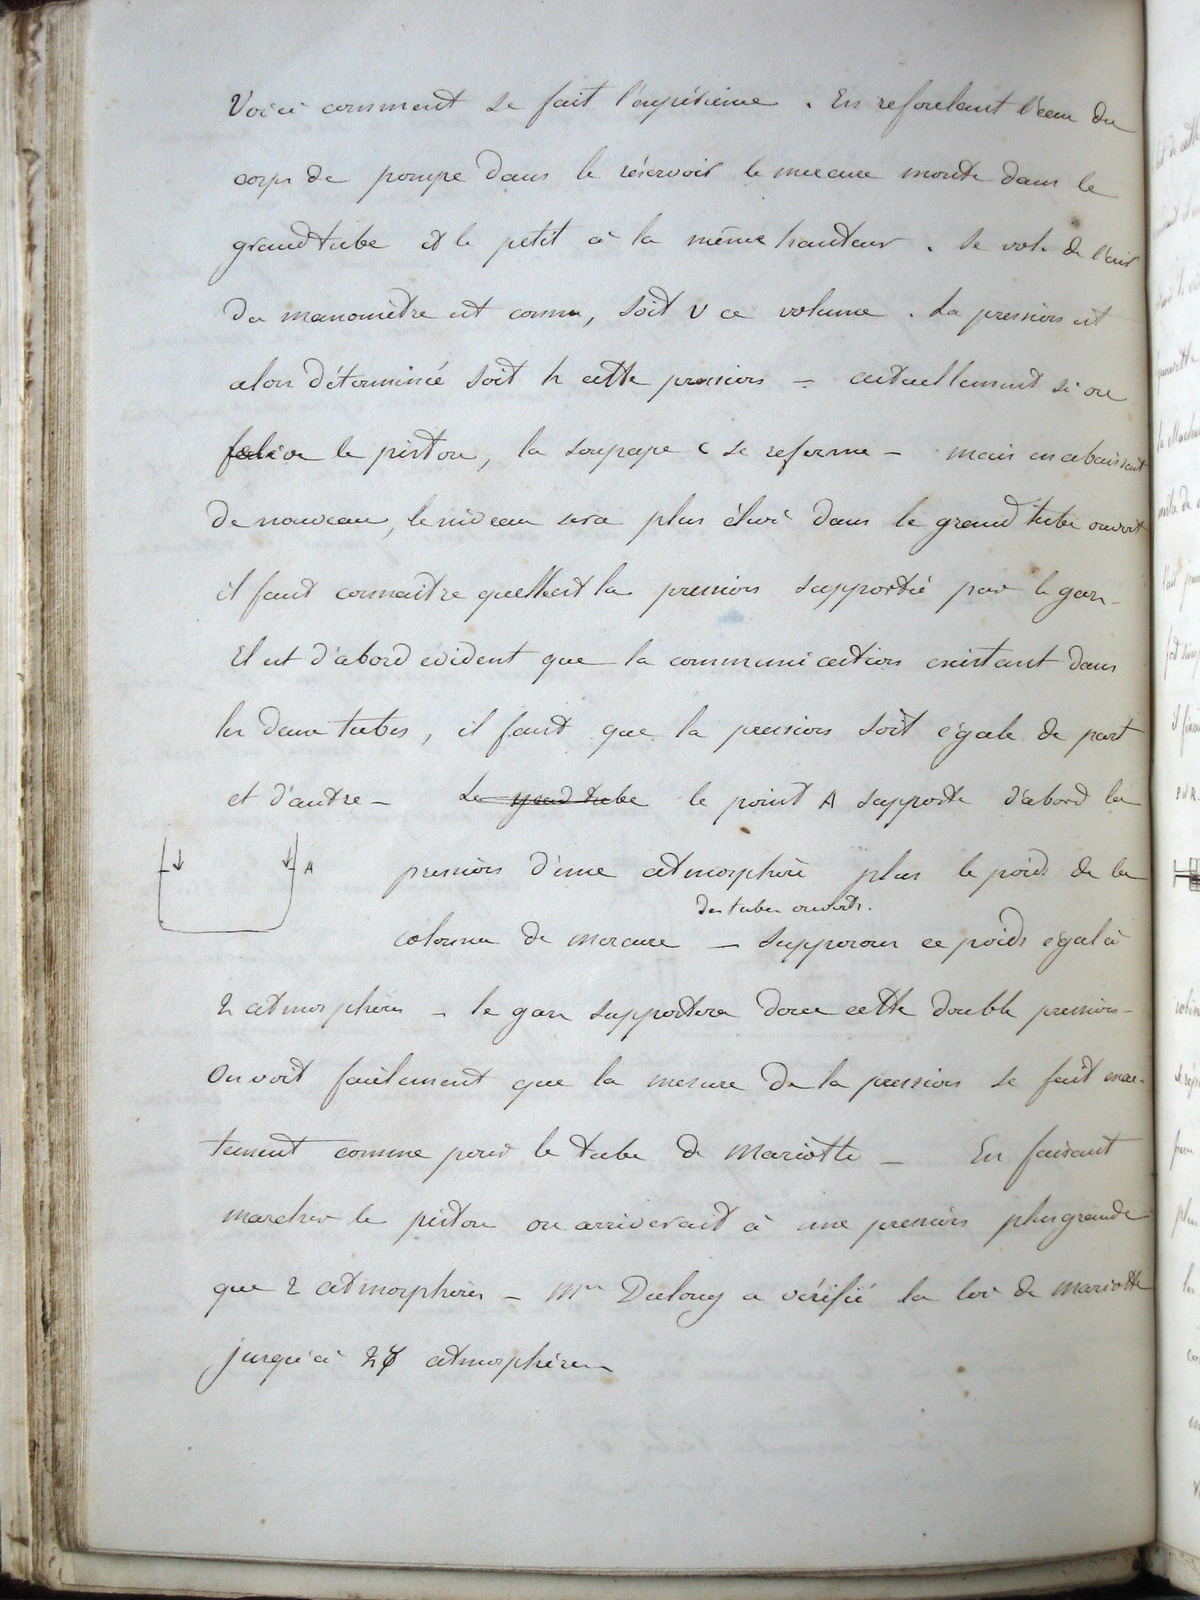 Voici comment se fait l'expérience. En refoulant l'eau du
corps de pompe dans le réservoir le mercure monte dans le
grand tube et le petit à la même hauteur. Le vol. de l'air
du manomètre est connu, soit V ce volume. La pression est
alors déterminée soit h cette pression – actuellement si on
le piston, la soupape C se referme – mais en abaissant
de nouveau, le niveau sera plus élevé dans le grand tube ouvert
il faut connaitre quelle est la pression supportée par le gaz –
Il est d'abord evident que la communication existant dans
les deux tubes, il faut que la pression soit égale de part
et d'autre – Le grand tube le point A supporte d'abord la
A
pression d'une atmosphère plus le poids de la
des tubes ouverts.
colonne de mercure – supposons ce poids égal à
2 atmosphères – le gaz supportera donc cette double pression –
On voit facilement que la mesure de la pression se fait exac-
tement comme pour le tube de Mariotte – En faisant
marcher le piston on arriverait à une pression plus grande
que 2 atmosphères – Mr Dulong a vérifié la loi de Mariotte
jusqu'à 27 atmosphères